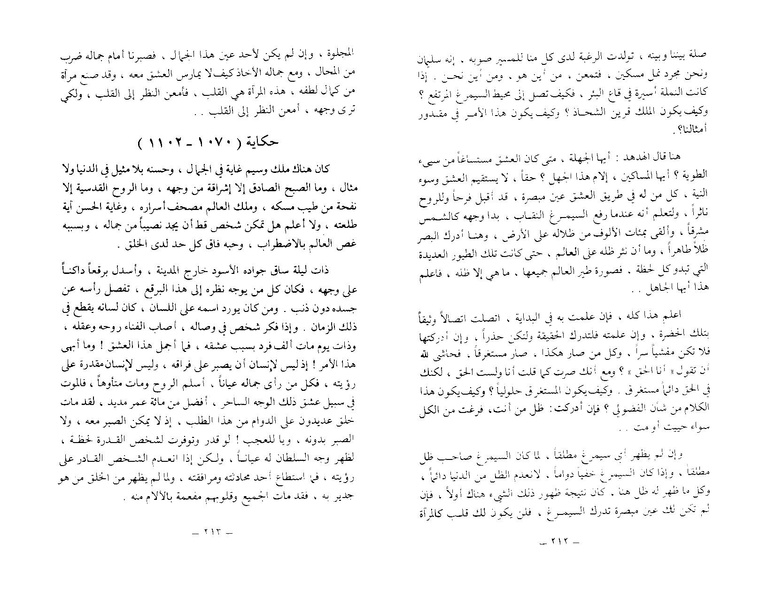 صلة بيننا وبينه ، تولدت الرغبة لدى كل منا للمسير صوبه . إنه سليمان
ونحن مجرد نمل مسكين ، فتمعن ، من أين هو ، ومن أين نحن . إذا
كانت النملة أسيرة في قاع البئر ، فكيف تصل إلى محيط السيمرغ المرتفع ؟
وكيف يكون الملك قرين الشحاذ ؟ وكيف يكون هذا الأمر في مقدور
أمثالنا؟.
هنا قال الهدهد : أيها الجهلة ، متى كان العشق مستساغاً من سيء
الطوية ؟ أيها المساكين ، إلام هذا الجهل ؟ حقاً ، لا يستقيم العشق وسوء
النية ، كل من له في طريق العشق عين مبصرة ، قد أقبل فرحاً وللروح
ناثراً ، ولتعلم أنه عندما رفع السيمرغ النقاب ، بدا وجهه كالشمس
مشرقاً ، وألقى بمئات الألوف من ظلاله على الأرض ، وهنا أدرك البصر
ظلاً طاهراً ، وما أن نثر ظله على العالم ، حتى كانت تلك الطيور العديدة
التي تبدو كل لحظة . فصورة طير العالم جميعها ، ما هي إلا ظله ، فاعلم
هذا أيها الجاهل . .
اعلم هذا كله ، فإن علمت به في البداية ، اتصلت اتصالاً وثيقاً
بتلك الحضرة . وإن علمته فلتدرك الحقيقة ولتكن حذراً ، وإن أدركتها
فلا تكن مفشياً سراً ، وكل من صار هكذا ، صار مستغرقاً ، فحاشى لله
أن تقول « أنا الحق » ؟ ومع أنك صرت كما قلت أنا ولست الحق ، لكنك
في الحق دائماً مستغرق . وكيف يكون المستغرق حلولياً ؟ وكيف يكون هذا
الكلام من شأن الفضولي ؟ فإن أدركت: ظل من أنت، فرغت من الكل
سواء حييت أو مت . .
وإن لم يظهر أي سيمرغ مطلقاً ، لما كان السيمرغ صاحب ظل
مطلقاً ، وإذا كان السيمرغ خفياً دواماً ، لانعدم الظل من الدنيا دائماً ،
وكل ما ظهر له ظل هنا . كان نتيجة ظهور ذلك الشيء هناك أولاً ، فإن
لم تكن لك عين مبصرة تدرك السيمرغ ، فلن يكون لك قلب كالمرآة
– ٢١٢ –
المجلوة ، وإن لم يكن لأحد عين هذا الجمال ، فصبرنا أمام جماله ضرب
من المحال ، ومع جماله الأخاذ كيف لا يمارس العشق معه ، وقد صنع مرآة
من كمال لطفه ، هذه المرآة هي القلب ، فأمعن النظر إلى القلب ، ولكي
ترى وجهه ، أمعن النظر إلى القلب . .
حكاية ( ١٠٧٠ – ١١٠٢ )
كان هناك ملك وسيم غاية في الجمال ، وحسنه بلا مثيل في الدنيا ولا
مثال ، وما الصبح الصادق إلا إشراقة من وجهه ، وما الروح القدسية إلا
نفحة من طيب مسكه ، وملك العالم مصحف أسراره ، وغاية الحسن آية
طلعته ، ولا أعلم هل تمكن شخص قط أن يجد نصيباً من جماله ، وبسببه
غص العالم بالاضطراب ، وحبه فاق كل حد لدى الخلق .
ذات ليلة ساق جواده الأسود خارج المدينة ، وأسدل برقعاً داكناً
على وجهه ، فكان كل من يوجه نظره إلى هذا البرقع ، تفصل رأسه عن
جسده دون ذنب . ومن كان يورد اسمه على اللسان ، كان لسانه يقطع في
ذلك الزمان . وإذا فكر شخص في وصاله ، أصاب الفناء روحه وعقله ،
وذات يوم مات ألف فرد بسبب عشقه ، فما أجمل هذا العشق ! وما أبهى
هذا الأمر ! إذ ليس لإنسان أن يصبر على فراقه ، وليس لإنسان مقدرة على
رؤيته ، فكل من رأى جماله عياناً ، أسلم الروح ومات متأوهاً ، فالموت
في سبيل عشق ذلك الوجه الساحر ، أفضل من مائة عمر مديد ، لقد مات
خلق عديدون على الدوام من هذا الطلب ، إذ لا يمكن الصبر معه ، ولا
الصبر بدونه ، ويا للعجب ! لو قدر وتوفرت لشخص القدرة لحظة ،
لظهر وجه السلطان له عياناً ، ولكن إذا انعدم الشخص القادر على
رؤيته ، فما استطاع أحد محادثته ومرافقته ، ولما لم يظهر من الخلق من هو
جدير به ، فقد مات الجميع وقلوبهم مفعمة بالآلام منه .
– ٢١٣ –